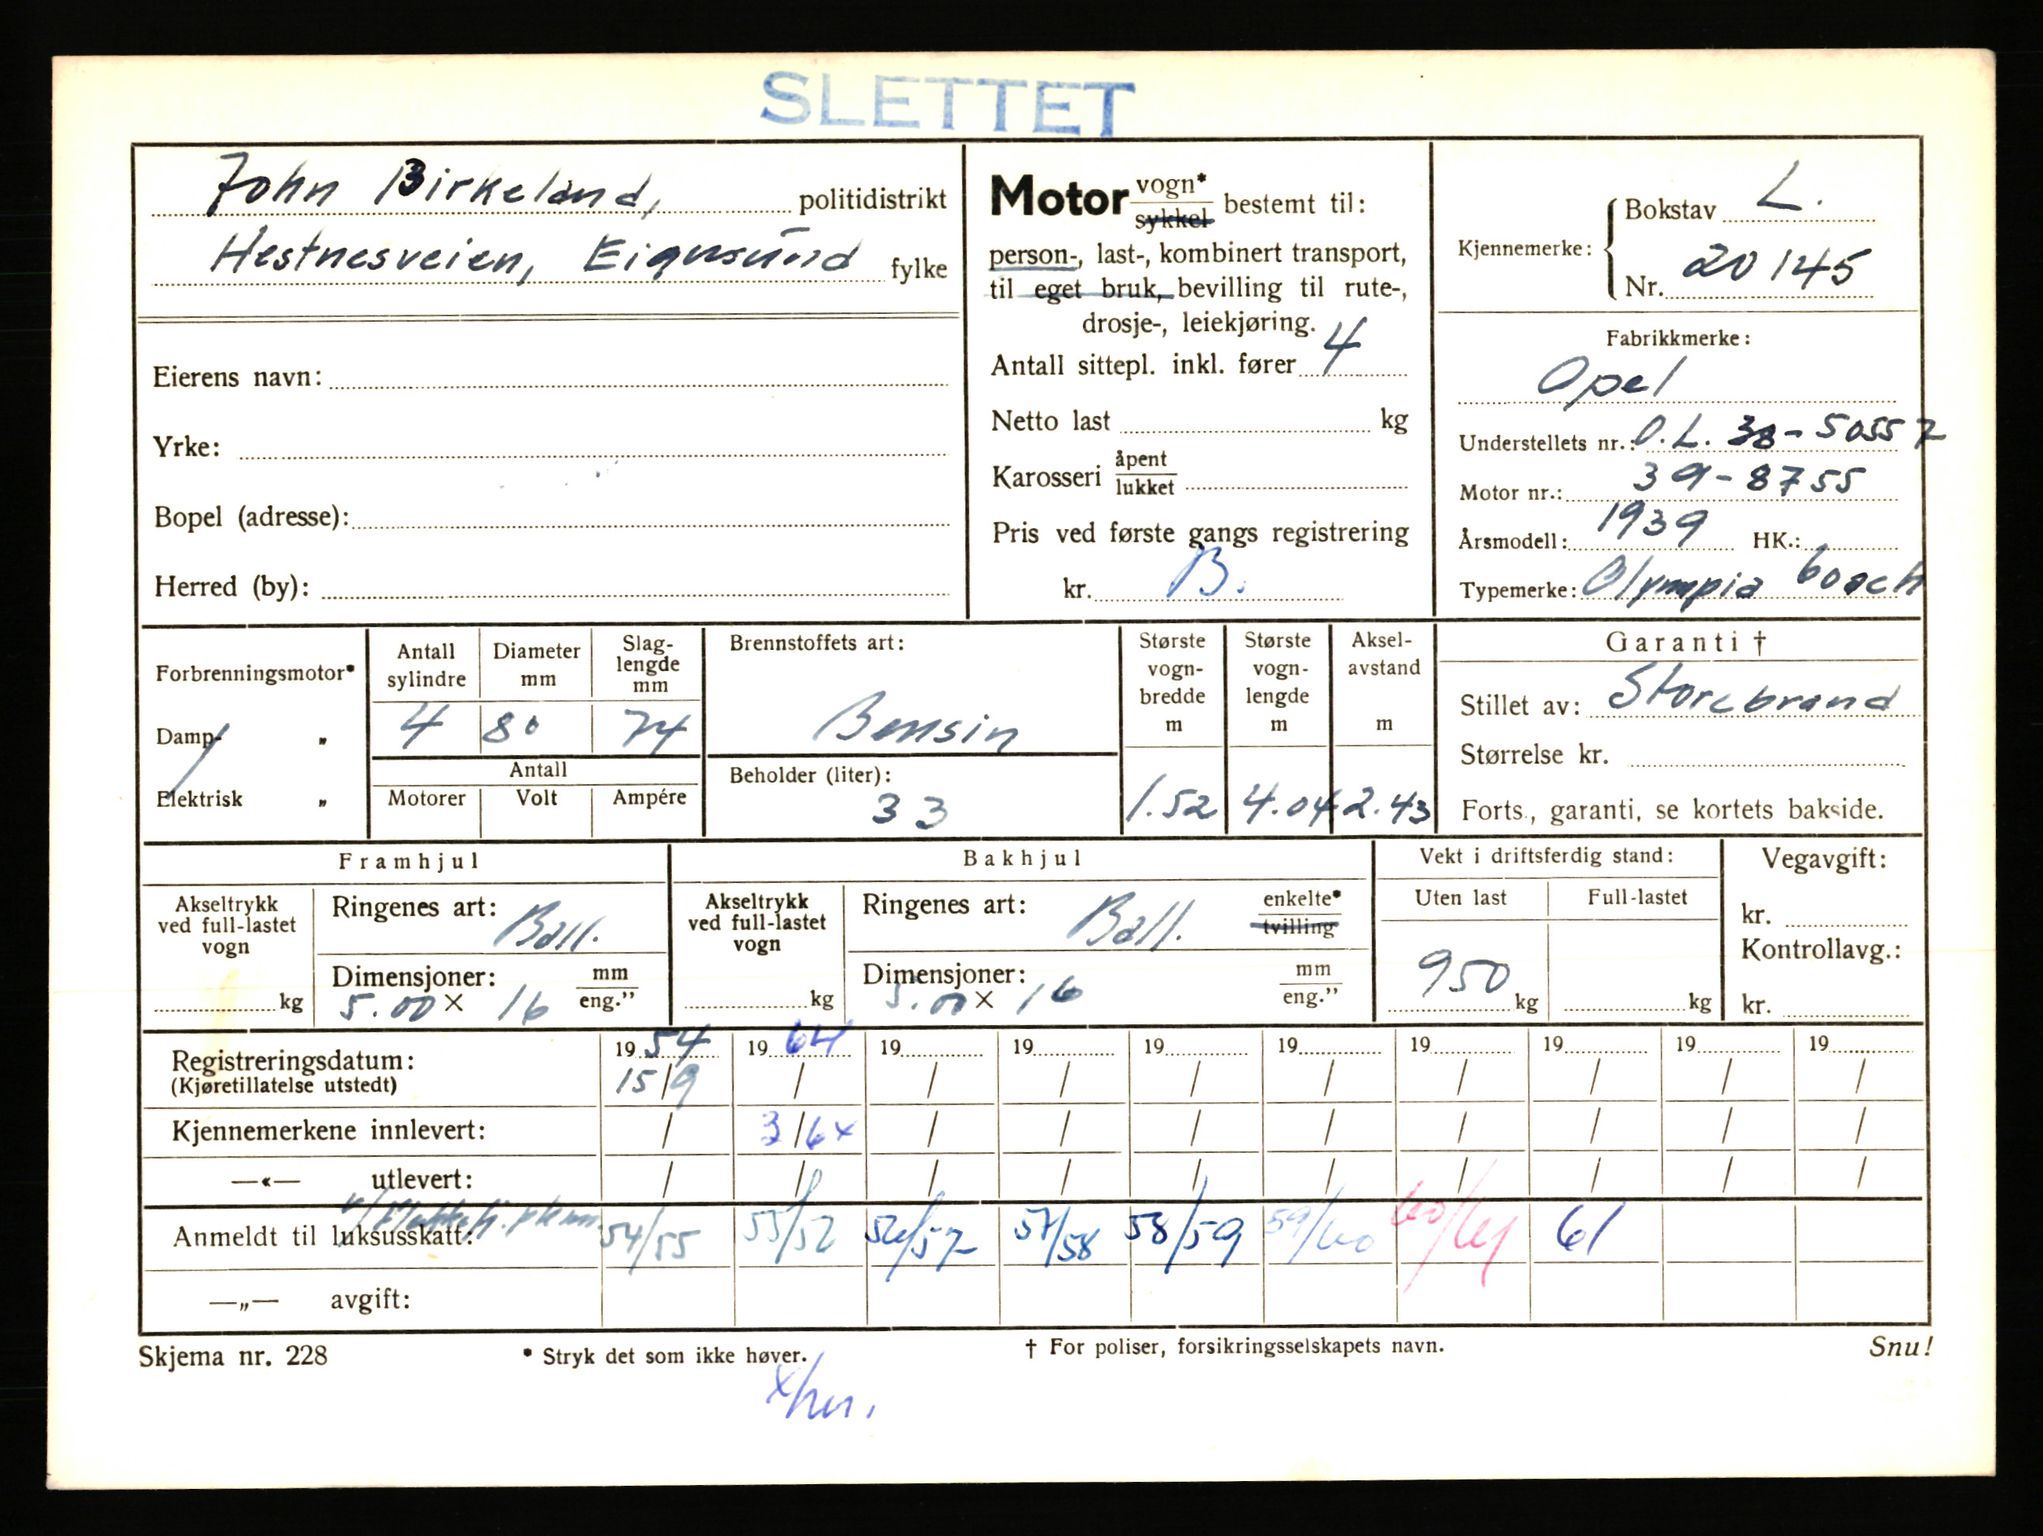 SLETTET
John Birkeland, politidistrikt
Hestnesveien, Eigersund fylke
Eierens navn:
Yrke:
Bopel (adresse):
Herred (by):
Motor vogn* sykkel bestemt til:
person-, last-, kombinert transport,
til eget bruk, bevilling til rute-,
drosje-, leiekjøring.
Antall sittepl. inkl. fører 4
Netto last kg
Karosseri åpent lukket
Pris ved første gangs registrering
kr. B.
Kjennemerke: Bokstav L.
Nr. 20145
Fabrikkmerke:
Opel
Understellets nr.: O.L. 38-50557
Motor nr.: 39-8755
Årsmodell: 1939 HK.:
Typemerke: Olympia coach
Forbrenningsmotor*
Damp- „
Elektrisk „
Antall sylindre Diameter mm Slag-lengde mm
4 80 74
Antall
Motorer Volt Ampére
Brennstoffets art:
Bensin
Beholder (liter):
33
Største vogn-bredde m
1.52
Største vogn-lengde m
4.04
Aksel-avstand m
2.43
Garanti †
Stillet av: Storebrand
Størrelse kr.
Forts., garanti, se kortets bakside.
Framhjul
Akseltrykk ved full-lastet vogn
kg
Ringenes art: Ball.
Dimensjoner: mm eng.”
5.00 × 16
Bakhjul
Akseltrykk ved full-lastet vogn
kg
Ringenes art: Ball. enkelte* tvilling
Dimensjoner: mm eng.”
5.00 × 16
Vekt i driftsferdig stand:
Uten last Full-lastet
950 kg kg
Vegavgift:
kr.
Kontrollavg.:
kr.
Registreringsdatum: 19 54 19 64 19 19 19 19 19 19 19 19
(Kjøretillatelse utstedt) 15/9 / / / / / / / / /
Kjennemerkene innlevert: / 3/6 x / / / / / / / /
—«— utlevert: / / / / / / / / / /
Anmeldt til luksusskatt: 54/55 55/52 56/57 57/58 58/59 59/60 60/61 61
—„— avgift:
Skjema nr. 228
* Stryk det som ikke høver.
† For poliser, forsikringsselskapets navn.
Snu!